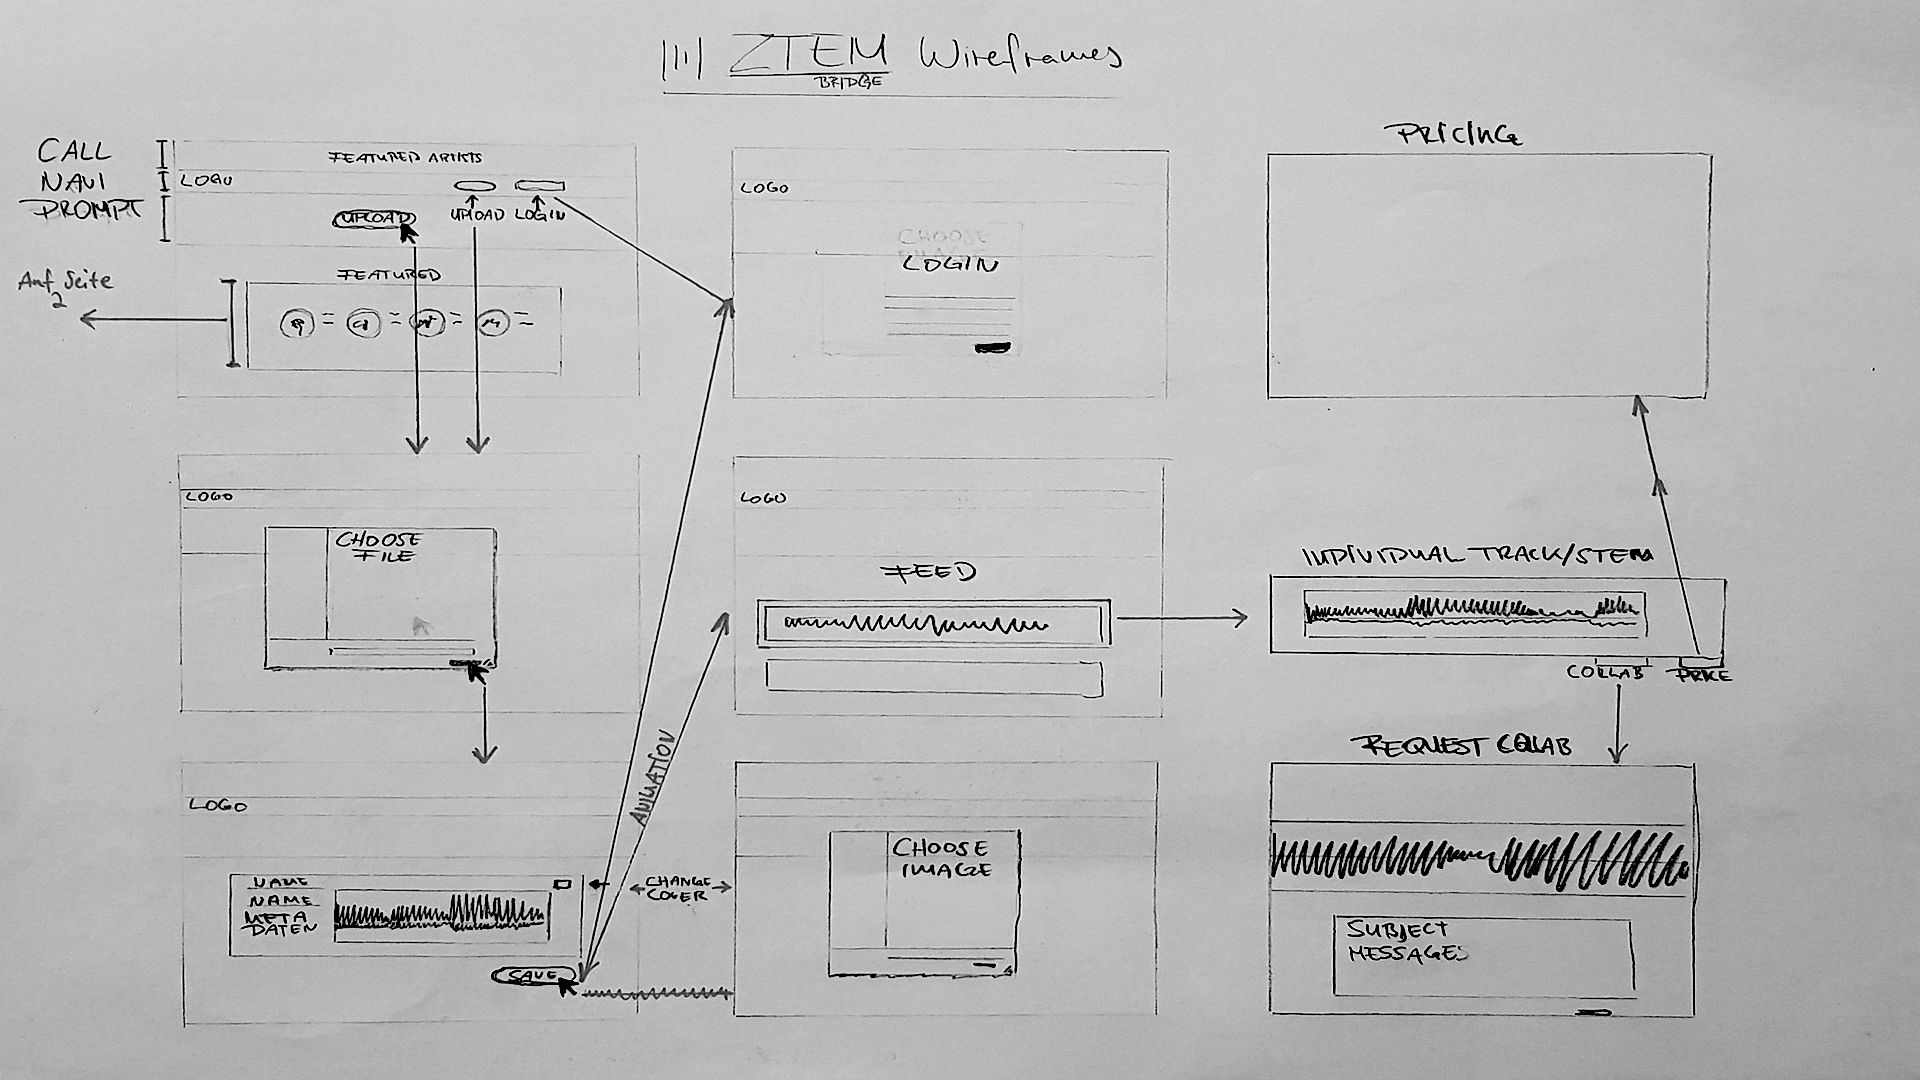 ZTEM Wireframes
BRIDGE
CALL
NAVI
PROMPT
FEATURED ARTISTS
LOGO
UPLOAD
UPLOAD
LOGIN
Auf Seite
2
FEATURED
LOGO
CHOOSE
LOGIN
PRICING
LOGO
CHOOSE
FILE
LOGO
FEED
INDIVIDUAL TRACK/STEM
COLLAB
PRICE
LOGO
NAME
NAME
META
DATEN
SAVE
ANIMATION
CHANGE
COVER
CHOOSE
IMAGE
REQUEST COLLAB
SUBJECT
MESSAGE